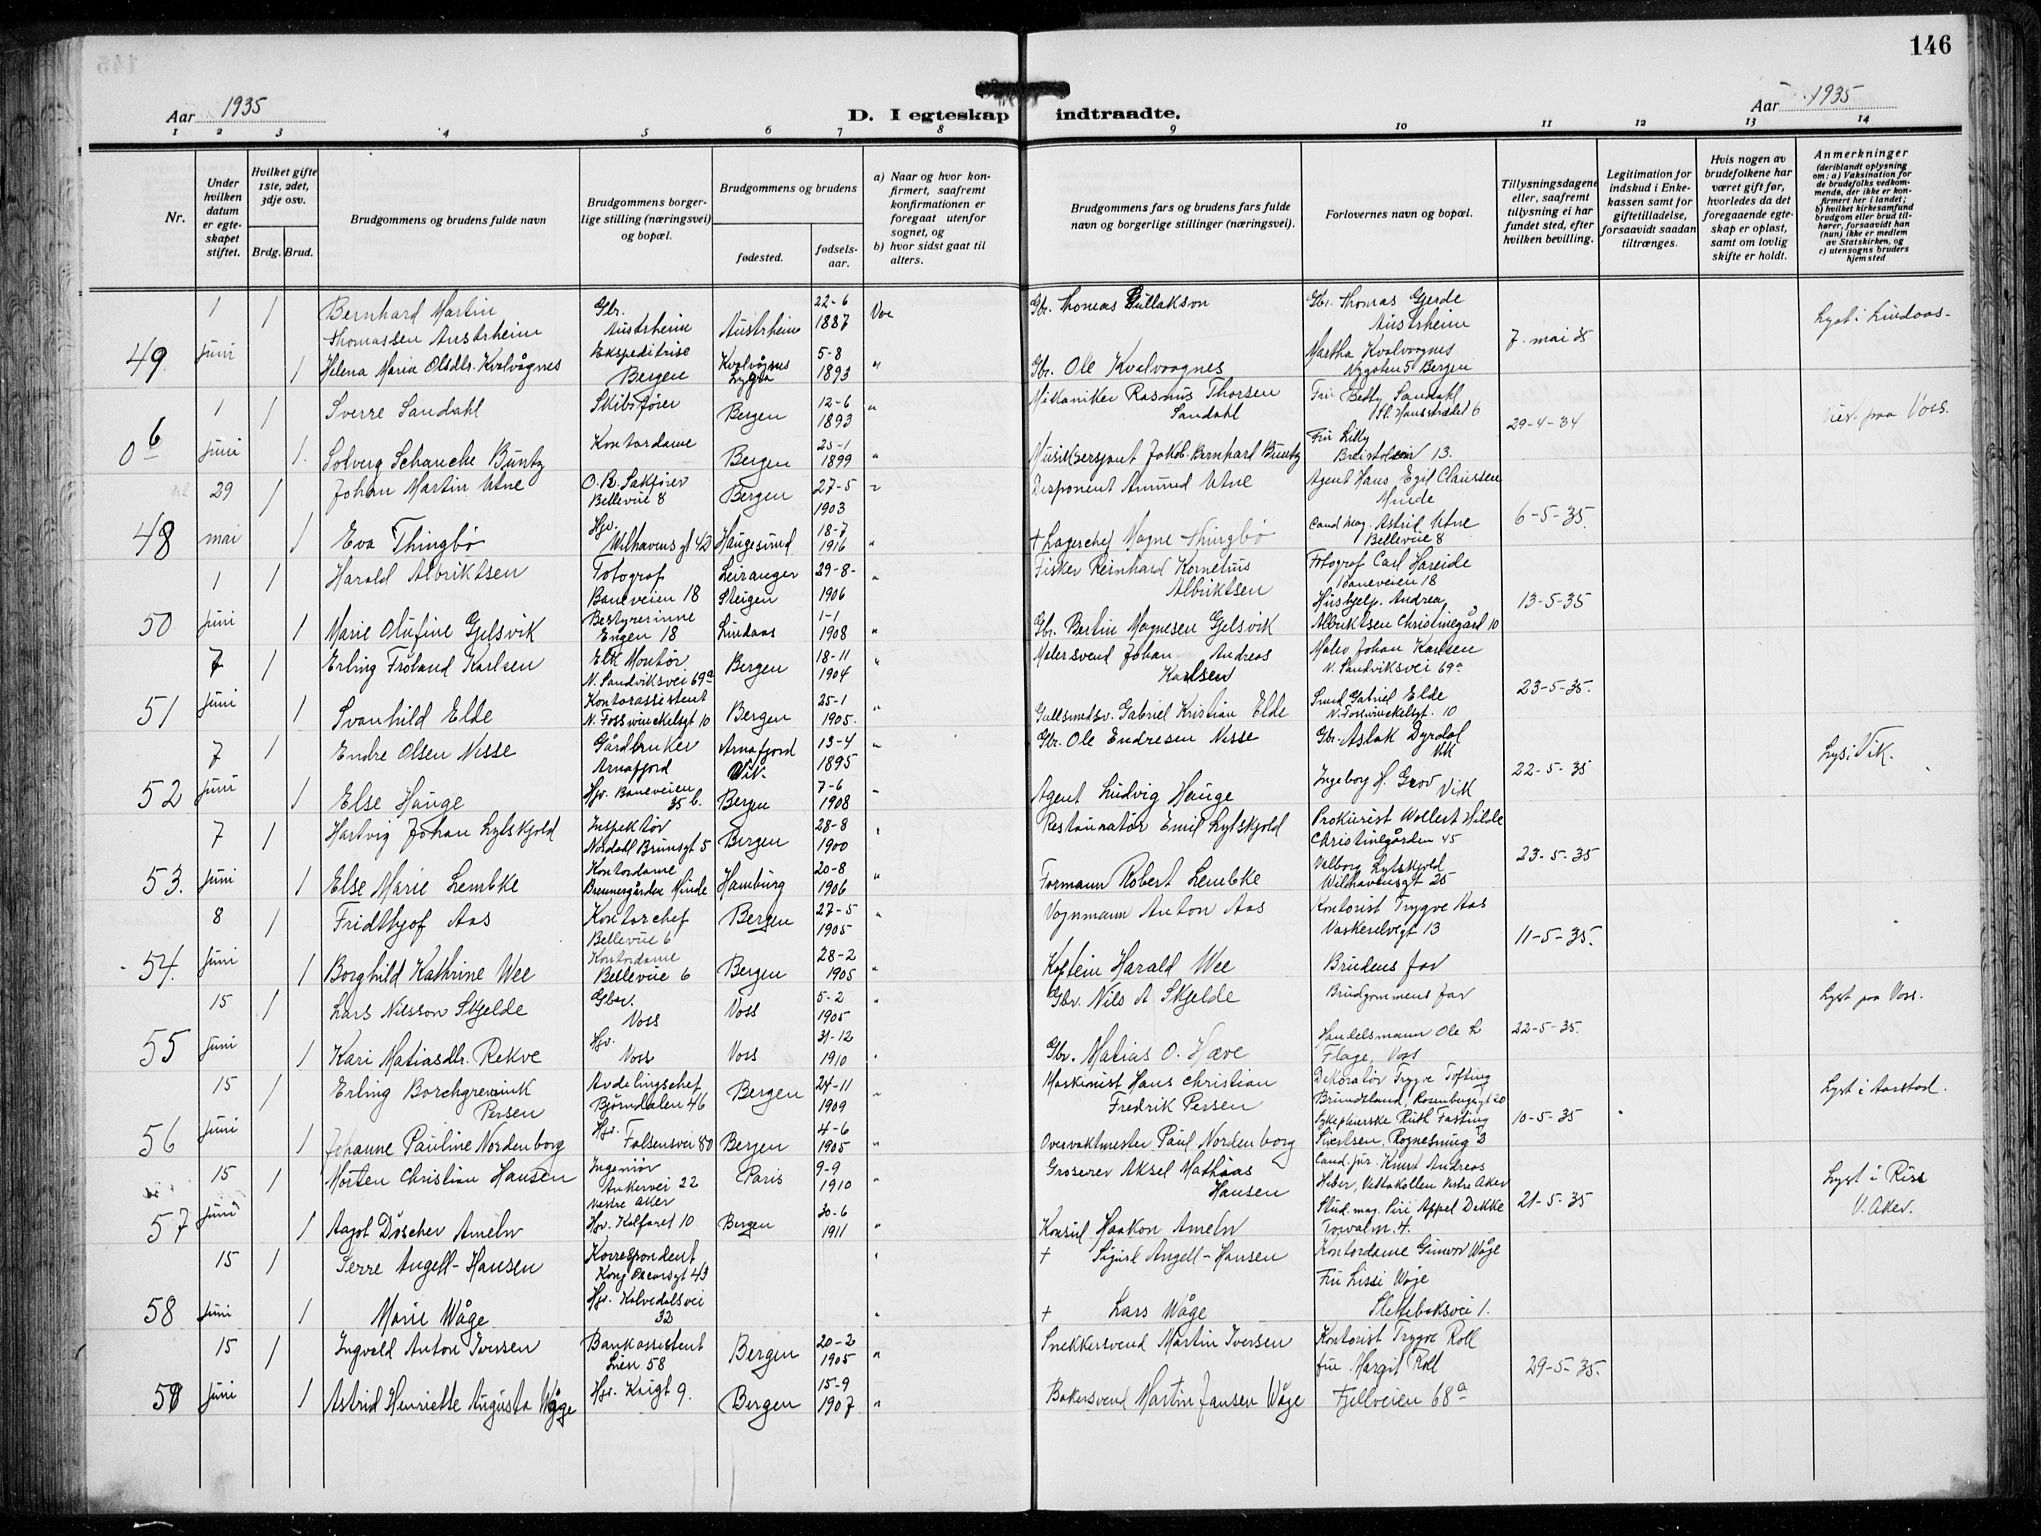 146
Aar 1935
D. I egteskap indtraadte.
Aar 1935
1 2 3 4 5 6 7 8 9 10 11 12 13 14
Nr.
Under hvilken datum er egteskapet stiftet.
Hvilket gifte 1ste, 2det, 3dje osv.
Brdg. Brud.
Brudgommens og brudens fulde navn
Brudgommens borgerlige stilling (næringsvei) og bopæl.
Brudgommens og brudens
fødested.
fødselsaar.
a) Naar og hvor konfirmert, saafremt konfirmationen er foregaat utenfor sognet, og
b) hvor sidst gaat til alters.
Brudgommens fars og brudens fars fulde navn og borgerlige stillinger (næringsvei).
Forlovernes navn og bopæl.
Tillysningsdagene eller, saafremt tillysning ei har fundet sted, efter hvilken bevilling.
Legitimation for indskud i Enkekassen samt for giftetilladelse, forsaavidt saadan tiltrænges.
Hvis nogen av brudefolkene har været gift før, hvorledes da det foregaaende egteskap er opløst, samt om lovlig skifte er holdt.
Anmerkninger
(deriblandt oplysning om: a) Vaksination for de brudefolks vedkommende, der ikke er konfirmert her i landet; b) hvilket kirkesamfund brudgom eller brud tilhører, forsaavidt han (hun) ikke er medlem av Statskirken, og c) utensogns bruders hjemsted
49 1 juni 1 Bernhard Martin Thomassen Austrheim Gbr. Austrheim Austrheim 22-6 1887 Gbr. Thomas Gullakson Gbr. Thomas Gjerde Austrheim 7 mai 35 Lyst i Lindaas
1 Helena Marie Olsdtr. Kvalvågnes Ekspeditrise Bergen Kvalvågnes Lygra 5-8 1893 " Gbr. Ole Kvalvaagnes Martha Kvalvaagnes Nygaten 5 Bergen
1 juni 1 Sverre Sandahl Skibsfører Bergen 12-6 1893 " Mekaniker Rasmus Thorsen Sandahl Fru Betty Sandahl St. Hansstrædet 6 29-4-34 Viet paa Voss.
1 Solveig Schanche Buntz Kontordame Bergen 25-1 1899 " Jakob Bernhard Buntz Fru Lilly 13.
48 29 mai 1 Johan Martin Utne O.R. Sakfører Bellevue 8 Bergen 27-5 1903 " Disponent Amund Utne Agent Hans Egil Claussen Minde 6-5-35.
1 Eva Thingbø Hjv. Welhavens gt 42 Haugesund 18-7 1916 " + Lagerchef Magne Thingbø Cand. mag. Astrid Utne Bellevue 8
50 1 juni 1 Harald Albriktsen Fotograf Baneveien 18 Leiranger Steigen 29-8- 1906 " Fisker Reinhard Kornelius Albriktsen Fotograf Carl Hareide Baneveien 18 13-5-35
1 Marie Olufine Gjelsvik Bestyrerinne Engen 18 Lindaas 1-1 1908 " Gbr. Bertin Magnesen Gjelsvik Hushjelp. Andrea Albriktsen Christinegård 10
51 7 juni 1 Erling Frøland Karlsen Elk Montør N. Sandviksvei 69a Bergen 18-11 1904 " Malersvend Johan Andreas Karlsen Maler Johan Karlsen N. Sandviksvei 69a 23-5-35.
1 Svanhild Elde Kontorassistent N. Fosswinckelsgt 10 Bergen 25-1 1905. " Gullsmedsv. Gabriel Kristian Elde Smed Gabriel Elde N. Fosswinckelsgt. 10
52 7 juni 1 Endre Olsen Nesse Gårdbruker Arnafjord Arnafjord Vik. 13-4 1895 " Gbr. Ole Endresen Nesse Gbr. Aslak Dyrdal Vik 22-5-35 Lys i Vik.
1 Else Hauge Hjv. Baneveien 35 b. Bergen 7-6 1908 " Agent Ludvig Hauge Ingeborg H. Grov Vik
53. 7 juni 1 Hartvig Johan Lytskjold Inspektør Nordahl Brunsgt 5 Bergen 28-8 1900 " Restauratør Emil Lytskjold Prokurist Wollert Hilde Christinegården 45 23-5-35
1 Else Marie Lembke Kontordame Brennergården Minde Hamburg 20-8 1906 " Formann Robert Lembke Valborg Lytskjold Welhavensgt 25
54. 8 juni 1 Fridthjof Aas Kontorchef Bellevue 6 Bergen 27-5 1905 " Vognmann Anton Aas Kontorist Trygve Aas Vaskerelvgt 13 11-5-35.
1 Borghild Kathrine Wee Kontordame Bellevue 6 Bergen 28-2 1905 " Kaptein Harald Wee Brudens far
55 15 juni 1 Lars Nilsson Skjelde Gbr. Voss Voss 5-2 1905 " Gbr. Nils A. Skjelde Brudgommens far 22-5-35. Lyst paa Voss.
1 Kari Matiasdtr. Rekve Hjv. Voss Voss 31-12 1910 " Gbr. Matias O. Hæve Handelsmann Ole L Flage, Voss
56 15 juni 1 Erling Borchgrevink Persen Avdelingschef Bjørndalen 46 Bergen 24-11 1909 " Maskinist Hans Christian Fredrik Persen Dekoratør Trygve Tofting Brundtland, Rosenbergsgt 20 10-5-35 Lyst i Aarstad.
1 Johanne Pauline Nordenborg Hjv. Falsensvei 80 Bergen 4-6 1905 " Overvaktmester Paul Nordenborg Sykepleierske Ruth Fasting Sivertsen, Rognesmug 3
57 15 juni 1 Morten Christian Hansen Ingeniør Ankervei 22 Vestre Aker Paris 9-9 1910 " Grosserer Aksel Mathias Hansen Cand. jur. Knut Andreas Heber, Vettakollen Vestre Aker 21-5-35 Lyst i Ris V. Aker.
1 Aagot Döscher Ameln Hjv. Kalfaret 10 Bergen 30-6 1911 " Konsul Haakon Ameln Stud. mag. Siri Appel Dekke Torvalm. 4.
58 15 juni 1 Serre Angell-Hansen Korrespondent Kong Oscarsgt 43 " + Sigurd Angell-Hansen Kontordame Gunvor Wåge
1 Marie Wåge Hjv. Kalvedalsvei 32 " + Lars Wåge Fru Lissi Wåge Slettebaksvei 1.
59 15 juni 1 Ingvald Anton Iversen Bankassistent Lien 58 Bergen 20-2 1905 " Snekkersvend Martin Iversen Kontorist Trygve Roll 29-5-35.
1 Astrid Henriette Augusta Wåge Hjv. Kaigt 9. Bergen 15-9 1907 " Bakersvend Martin Jansen Wåge fru Margit Roll Fjellveien 68a